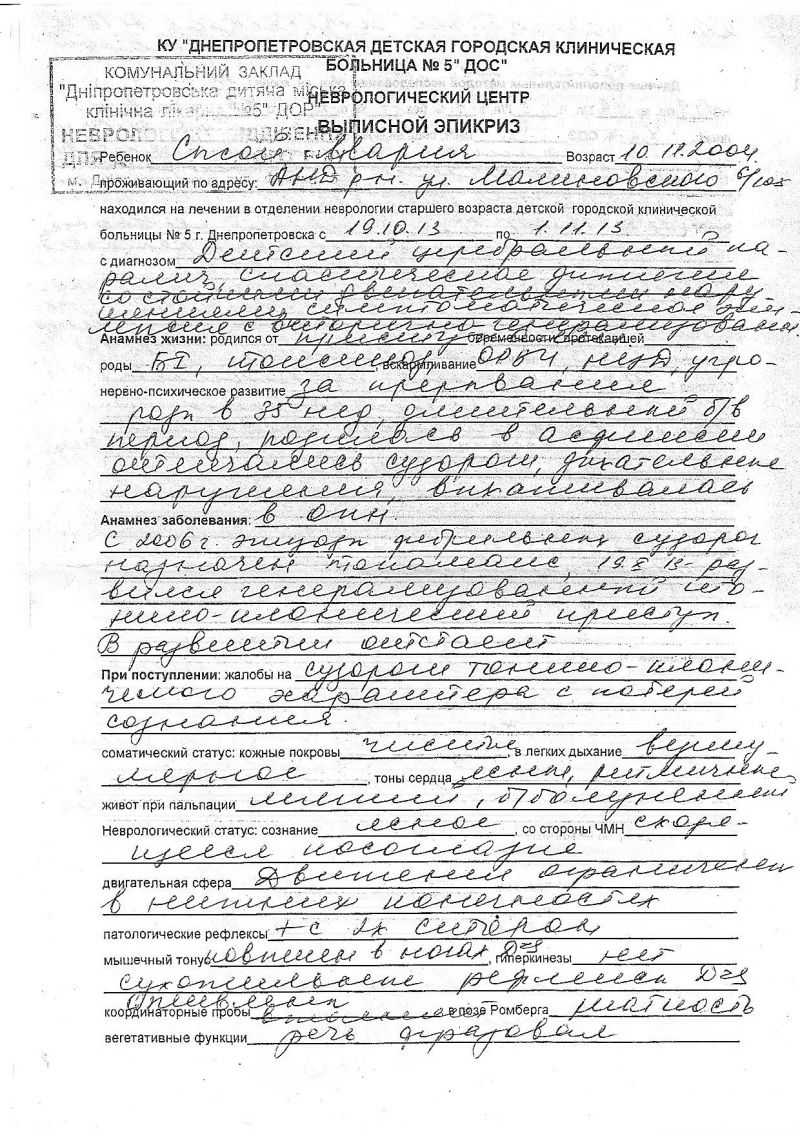 КУ "ДНЕПРОПЕТРОВСКАЯ ДЕТСКАЯ ГОРОДСКАЯ КЛИНИЧЕСКАЯ
БОЛЬНИЦА № 5" ДОС"
КОМУНАЛЬНИЙ ЗАКЛАД
"Дніпропетровська дитяча міська
клінічна лікарня №5" ДОР"
НЕВРОЛОГИЧЕСКИЙ ЦЕНТР
ВЫПИСНОЙ ЭПИКРИЗ
Ребенок Мария Возраст 10.11.2004.
проживающий по адресу: АНД рн. ул. Малиновского
находился на лечении в отделении неврологии старшего возраста детской городской клинической
больницы № 5 г. Днепропетровска с 19.10.13 по 1.11.13
с диагнозом Детский церебральный па-
ралич, спастическая диплегия
со стойкими двигательными нару-
шениями, симптоматическая эпи-
лепсия с вторично-генерализован.
Анамнез жизни: родился от беременности, протекавшей
роды БI, токсикоз, ОРВИ, вскармливание угро-
нервно-психическое развитие за прерывания
роды в 35 нед, длительный б/в
период, родилась в асфиксии
отмечались судороги, дыхательные
нарушения, выхаживалась
Анамнез заболевания: в ОПН.
С 2006 г. эпизоды фебрильных судорог
назначен топамакс, 19.X 13 раз-
вился генерализованный то-
нико-клонический приступ.
В развитии отстает
При поступлении: жалобы на судороги тонико-клони-
ческого характера с потерей
сознания.
соматический статус: кожные покровы чистые, в легких дыхание везику-
лярное, тоны сердца ясные, ритмичные
живот при пальпации мягкий, б/болезненный
Неврологический статус: сознание ясное, со стороны ЧМН сходя-
щееся косоглазие
двигательная сфера Движения ограничены
в нижних конечностях
патологические рефлексы + с 2х сторон
мышечный тонус повышен в ногах D=S, гиперкинезы нет
сухожильные рефлексы D=S
оживлены
координаторные пробы в позе Ромберга шаткость
вегетативные функции речь фразовая